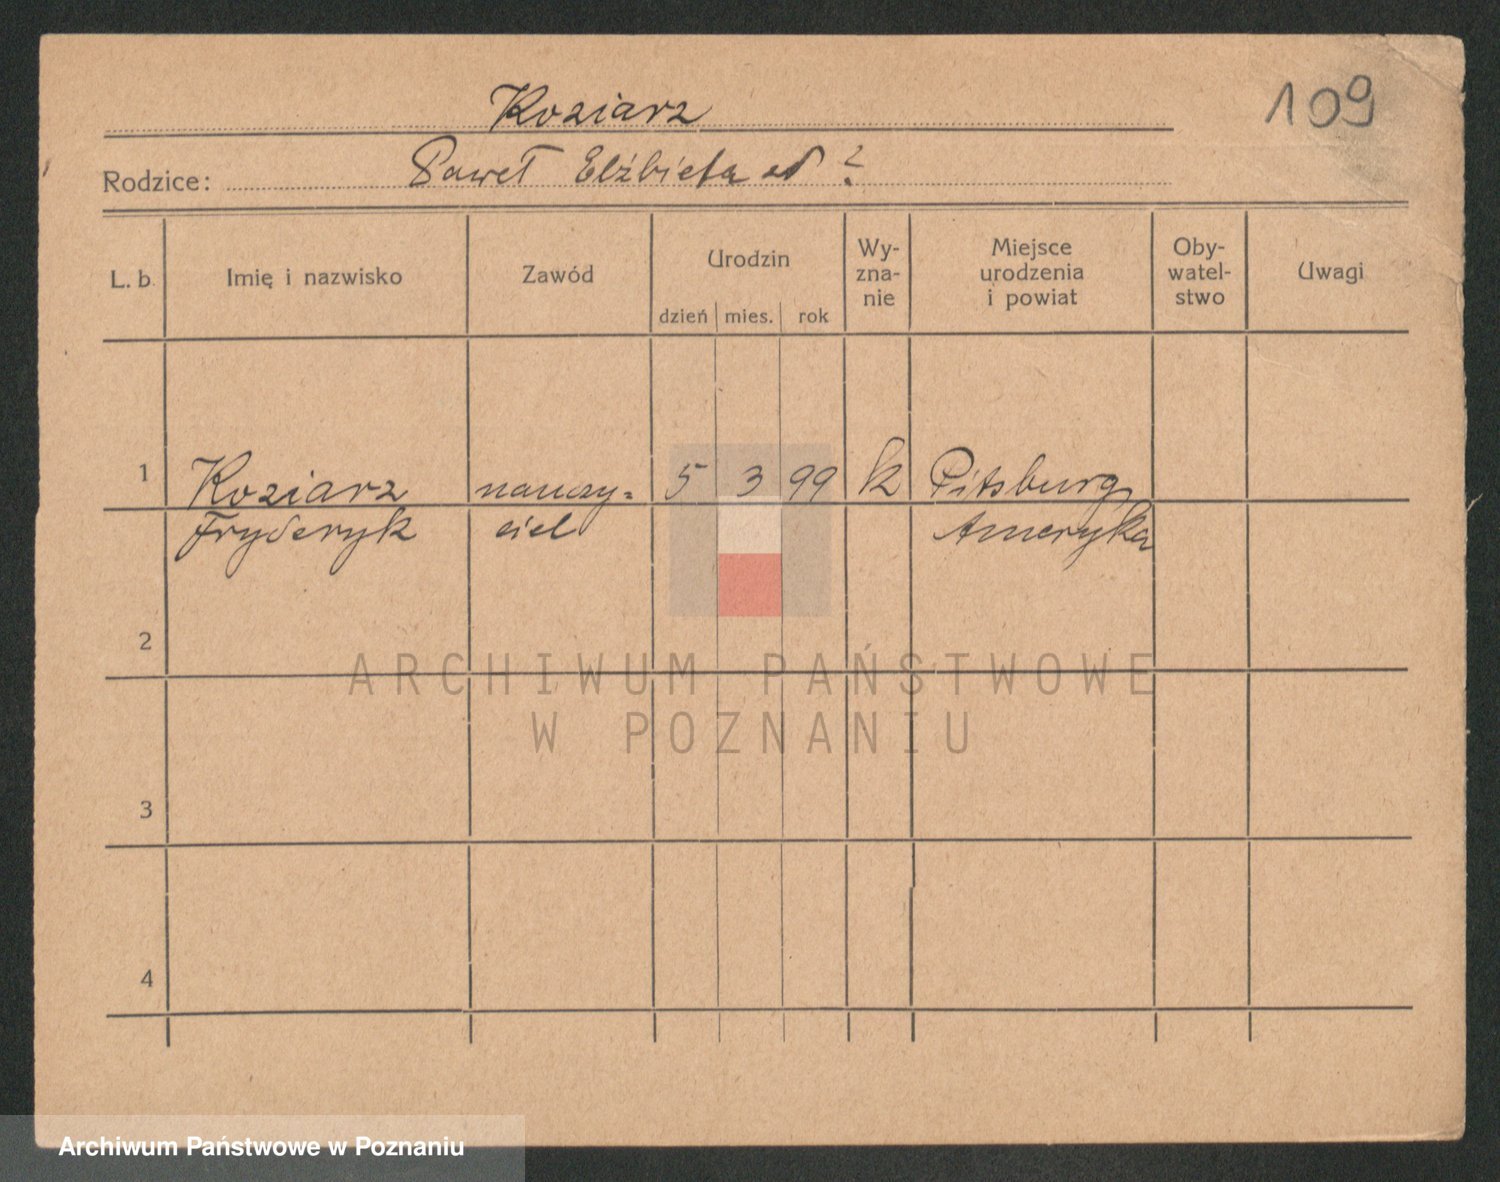 Koziarz
109
Rodzice: Paweł Elżbieta ?
L. b. Imię i nazwisko Zawód Urodzin Wy-zna-nie Miejsce urodzenia i powiat Oby-watel-stwo Uwagi
dzień mies. rok
1 Koziarz nauczy= 5 3 99 k Pitsburg
Fryderyk ciel Ameryka
2
ARCHIWUM PAŃSTWOWE
W POZNANIU
3
4
Archiwum Państwowe w Poznaniu